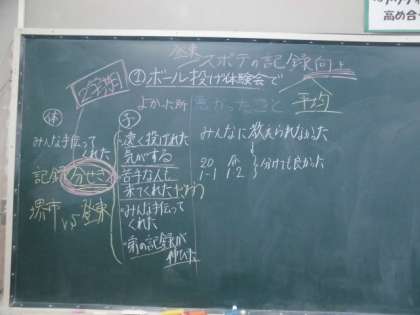 登東
スポテの記録向上
2学期
①ボール投げ体験会で
よかった所
悪かったこと
平均
体
子
みんな手伝って
くれた
記録分せき
堺市vs登東
・遠く投げれた
気がする
苦手な人も
来てくれた
・みんな手伝って
くれた
・弟の記録が
伸びた
みんなに教えられなかった
20
1-1
1-2
分けても良かった
高め合